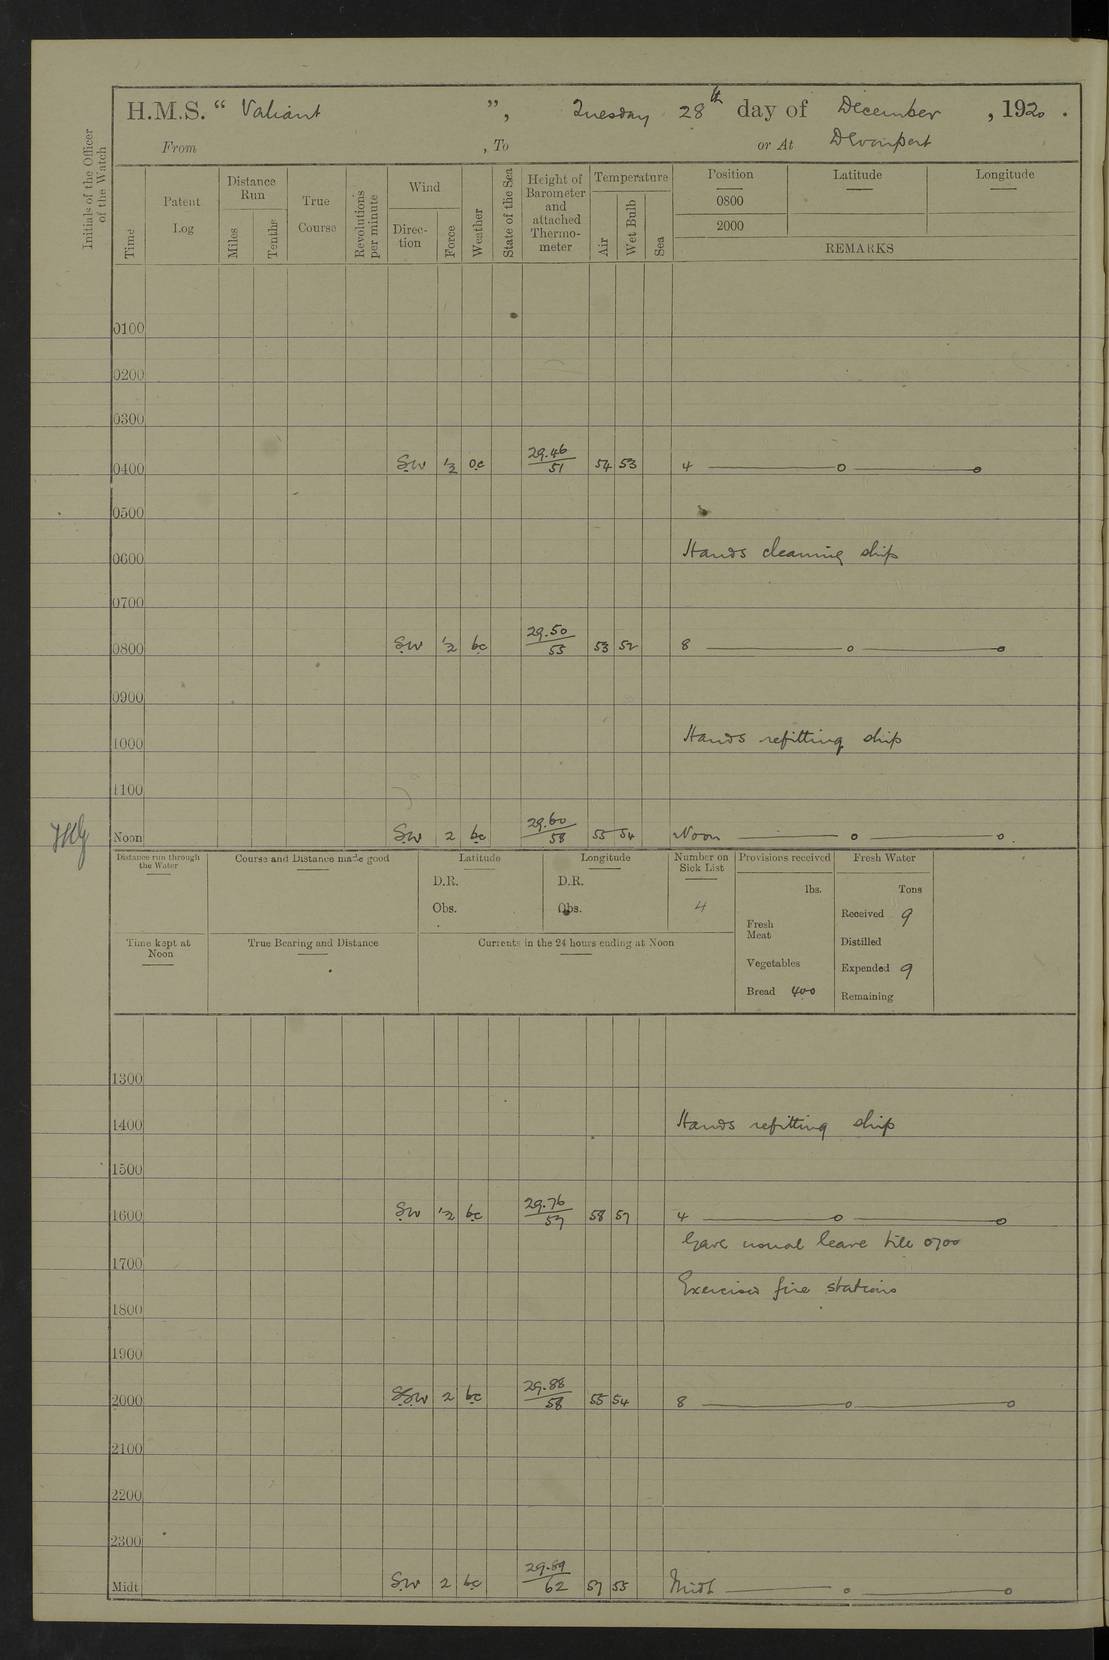 H.M.S. “ Valiant ”, Tuesday 28th day of December , 1920 .
From , To or At Devonport
Initials of the Officer of the Watch
Time
Patent Log
Distance Run
Miles
Tenths
True Course
Revolutions per minute
Wind
Direction
Force
Weather
State of the Sea
Height of Barometer and attached Thermometer
Temperature
Air
Wet Bulb
Sea
Position Latitude Longitude
0800
2000
REMARKS
0100
0200
0300
0400 SW 1/2 oc 29.46/51 54 53 4
0500
0600 Hands cleaning ship
0700
0800 SW 1/2 bc 29.50/55 53 52 8
0900
1000 Hands refitting ship
1100
Noon SW 2 bc 29.60/58 55 54 Noon
Distance run through the Water
Course and Distance made good
Latitude
D.R.
Obs.
Longitude
D.R.
Obs.
Number on Sick List
4
Provisions received
lbs.
Fresh Meat
Vegetables
Bread 400
Fresh Water
Tons
Received 9
Distilled
Expended 9
Remaining
Time kept at Noon
True Bearing and Distance
Currents in the 24 hours ending at Noon
1300
1400 Hands refitting ship
1500
1600 SW 1/2 bc 29.76/57 58 57 4
Gave usual leave till 0700
1700
Exercised fire stations
1800
1900
2000 SSW 2 bc 29.88/58 55 54 8
2100
2200
2300
Midt SW 2 bc 29.89/62 57 55 Midt